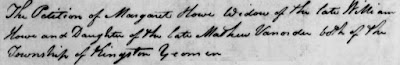 The Petition of Margaret Howe Widow of the late William
Howe and Daughter of the late Mathew Vanorder both of the
Township of Kingston Yeomen